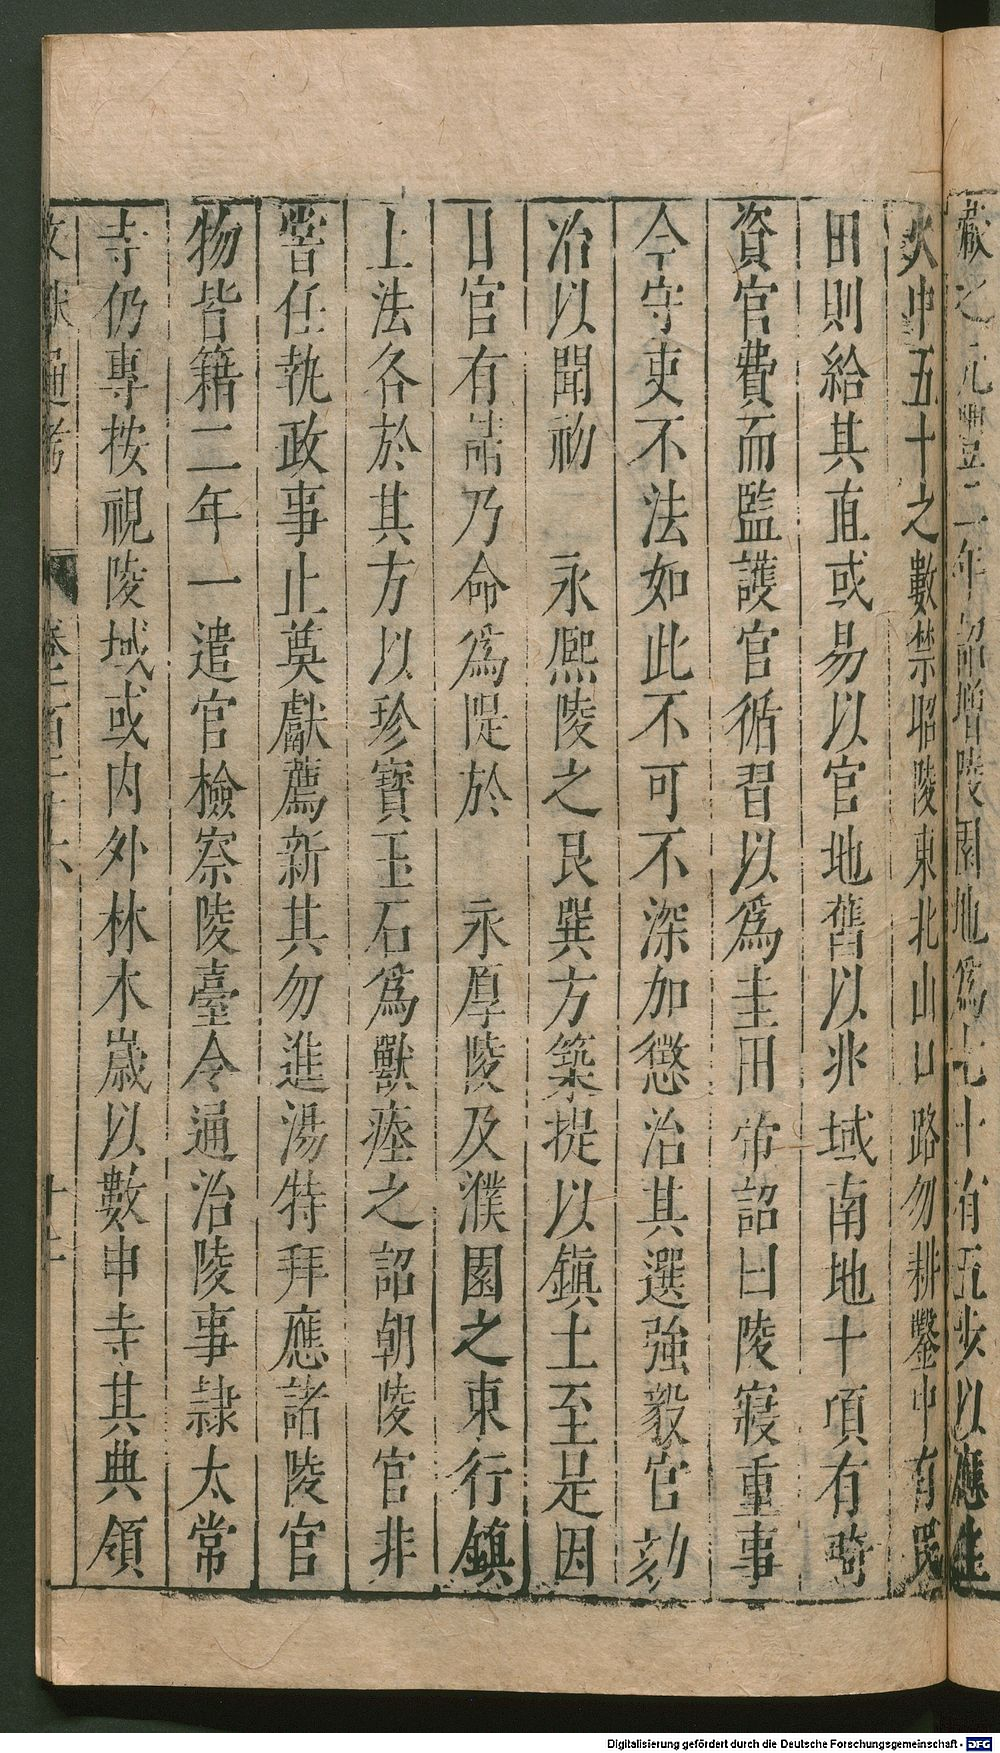 藏之元豐二年詔增陵園地爲七十有五步以應
火中五十之數禁昭陵東北山口路勿耕鑿中有民
田則給其直或易以官地舊以兆域南地十項有畸
資官費而監護官循習以爲圭田帝詔曰陵寢重事
今守吏不法如此不可不深加懲治其選強毅官劾
治以聞初 永熙陵之艮巽方築堤以鎮土至是因
日官有請乃命爲隄於 永厚陵及濮園之東行鎮
土法各於其方以珍寶玉石爲獸瘞之詔朝陵官非
嘗任執政事止奠獻薦新其勿進湯特拜應諸陵官
物皆籍二年一遣官檢察陵臺令通治陵事隷太常
寺仍專按視陵域或內外林木歲以數申寺其典領
文獻通考 卷一百二十六
Digitalisierung gefördert durch die Deutsche Forschungsgemeinschaft - DFG